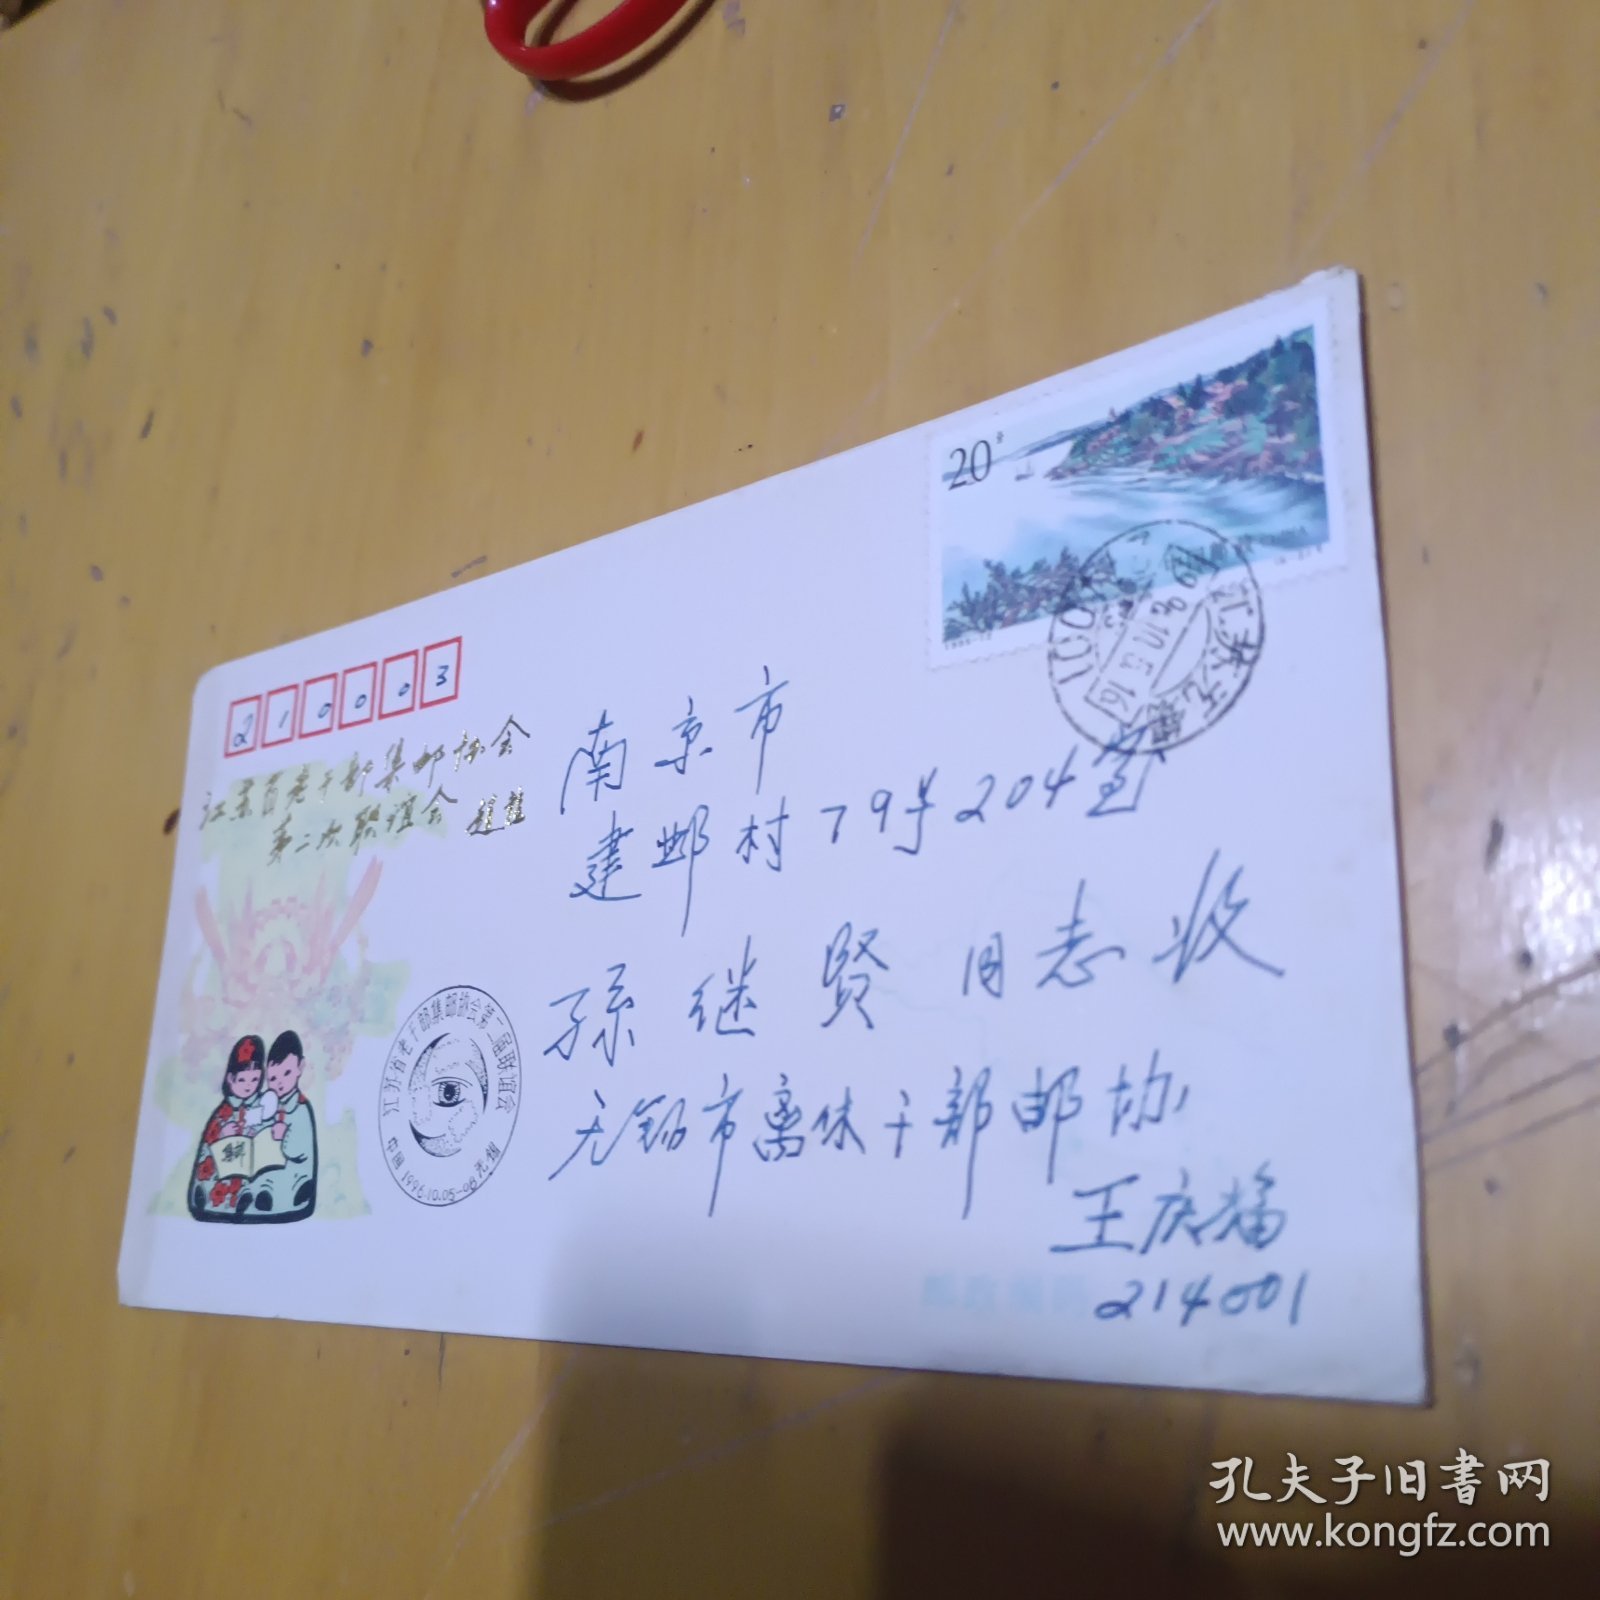 20分
1995-12
江苏无锡
1996.10.5.16
210003
江苏省老干部集邮协会
第二次联谊会
南京市
建邺村79号204室
孙继贤同志收
无锡市离休干部邮协
王庆
214001
江苏省老干部集邮协会第二届联谊会
中国 1996.10.05-06 无锡
集邮
邮政编码
孔夫子旧书网
www.kongfz.com